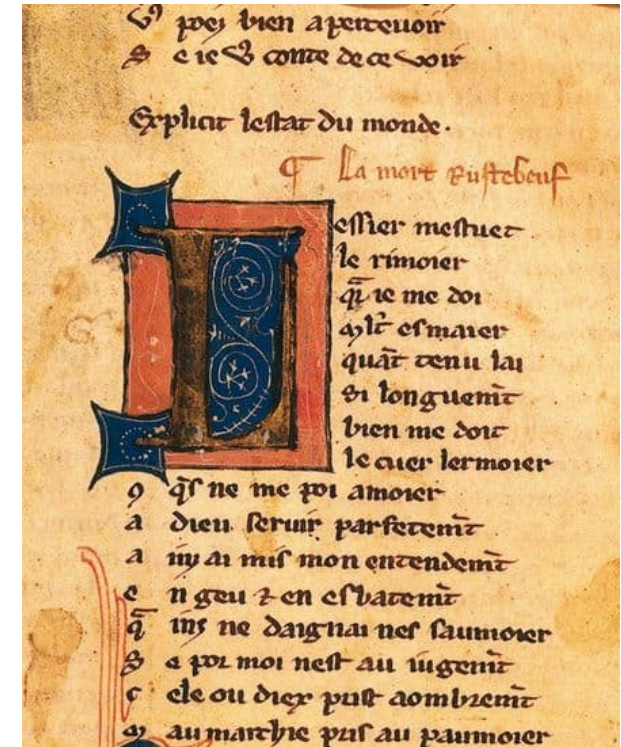 vꝰ poez bien apercevoir
S e ie vꝰ conte de ce voir
Explicit lestat du monde.
¶ La mort Rustebeuf
Lessier mestuet
le rimoier
q̄r ie me doi
mlt̄ esmaier
quāt tenu lai
si longuem̄t
bien me doit
le cuer lermoier
ꝯ q̄s ne me poi amoier
a dieu servir parfetem̄t
a inz ai mis mon entendem̄t
e n geu ⁊ en esbatem̄t
q̄ inz ne daignai nes saumoier
S e por moi nest au iugem̄t
c ele ou diex prist aombrem̄t
m au marchie pris au paumoier